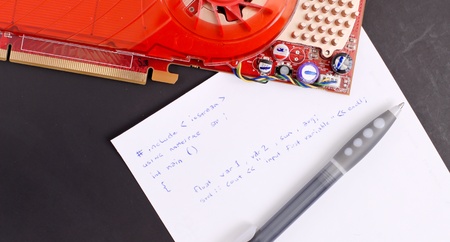 # include <iostream>
using namespace
int main ()
{
float var 1, var 2, sum, avg;
cout << " input first variable: " << endl;